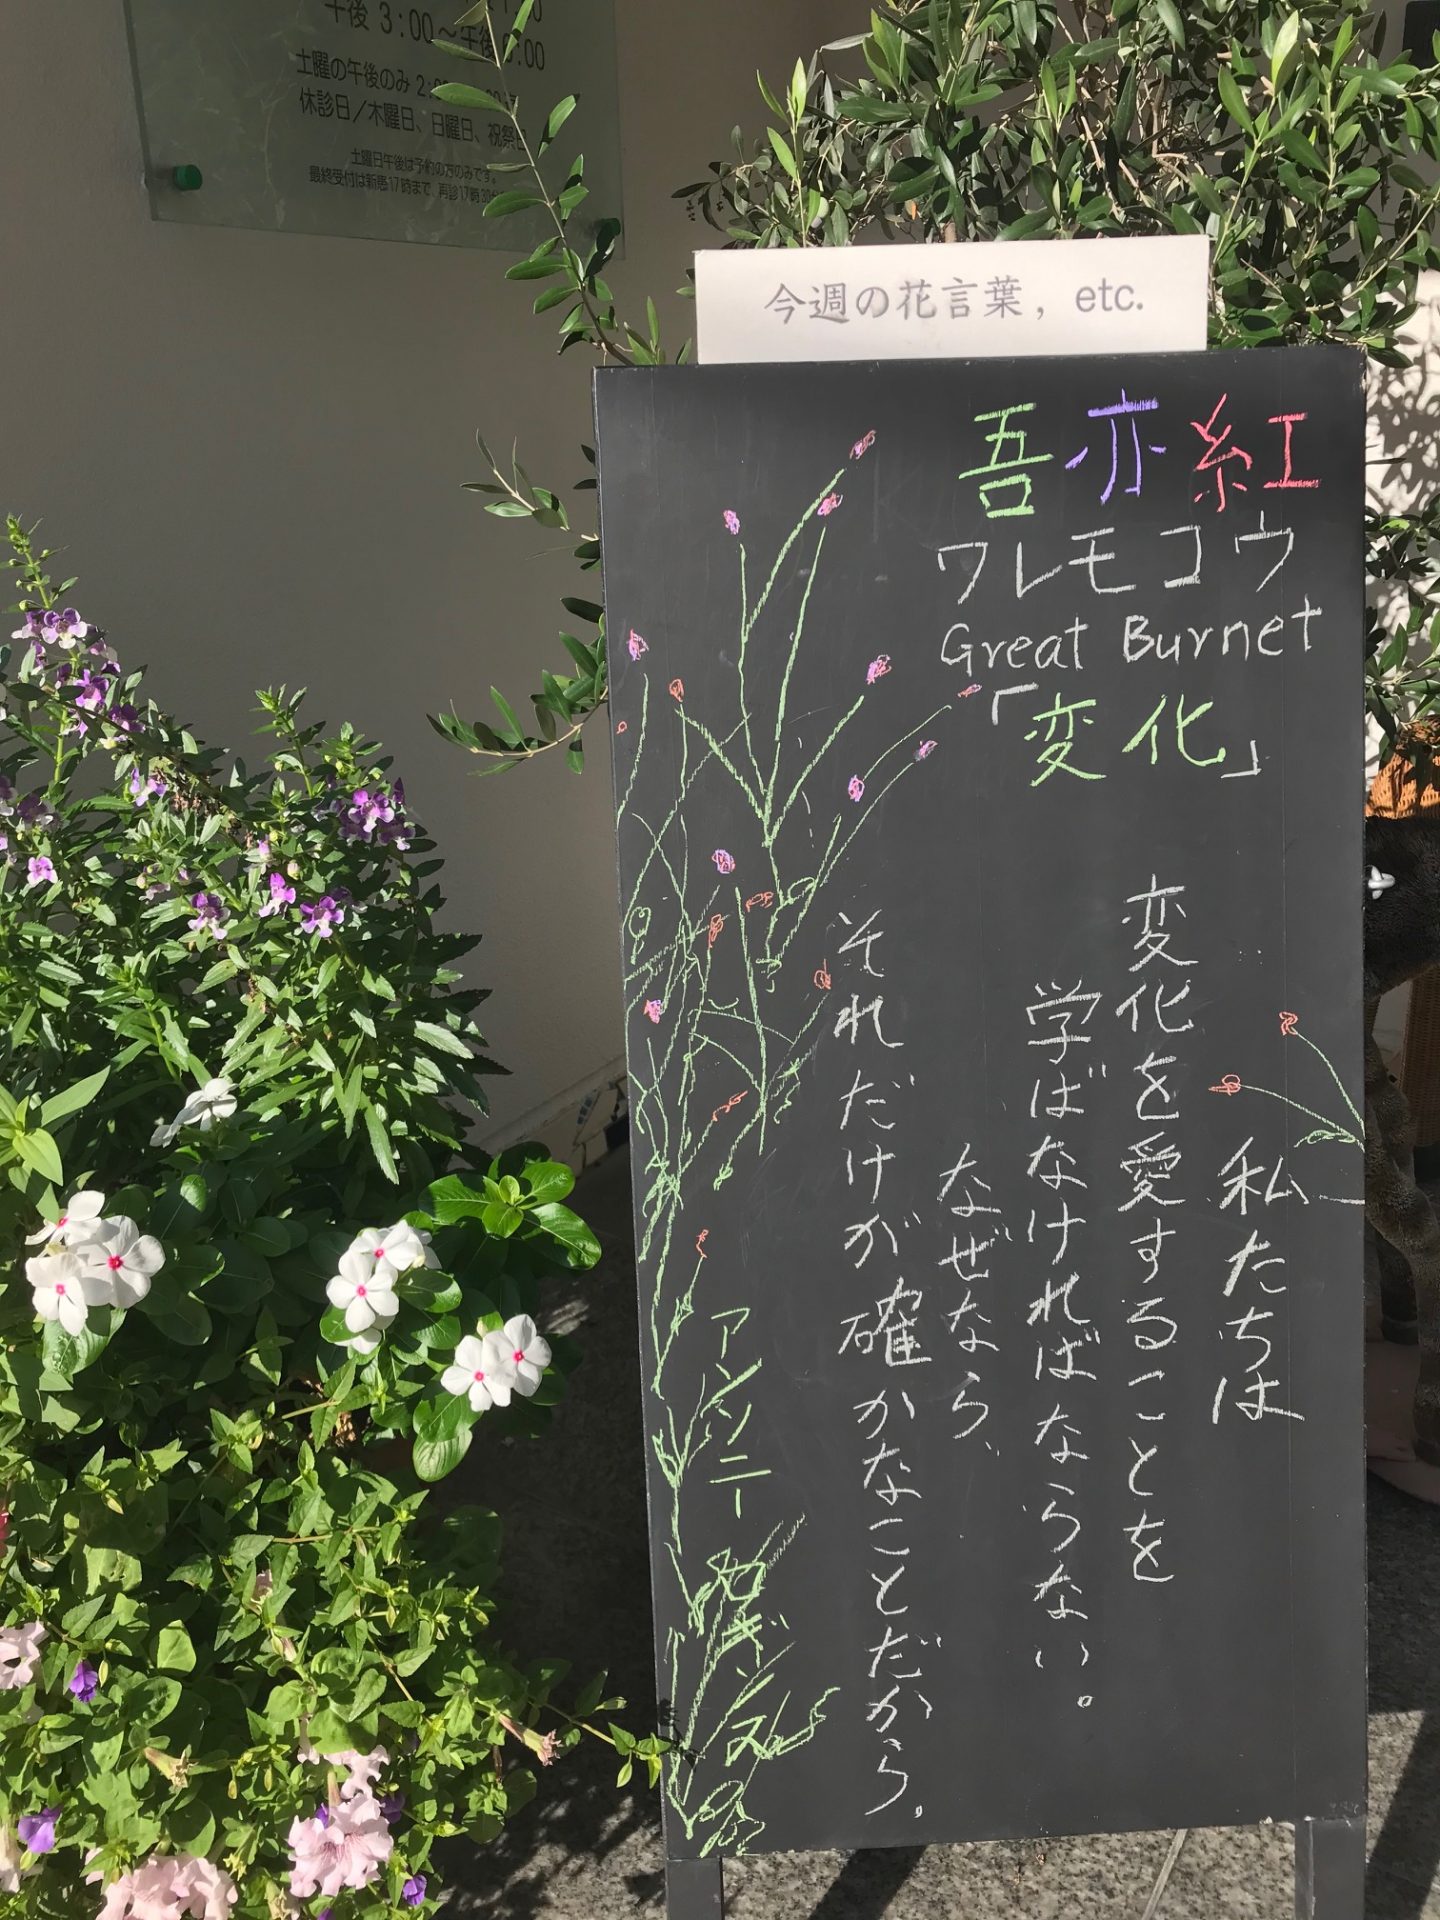 午後 3:00〜午後
土曜の午後のみ 2:
休診日／木曜日、日曜日、祝祭日
土曜日午後は予約の方のみです。
最終受付は新患17時まで、再診17時30
今週の花言葉, etc.
吾亦紅
ワレモコウ
Great Burnet
「変化」
私たちは
変化を愛することを
学ばなければならない。
なぜなら、
それだけが確かなことだから。
アンソニー
ロギンス